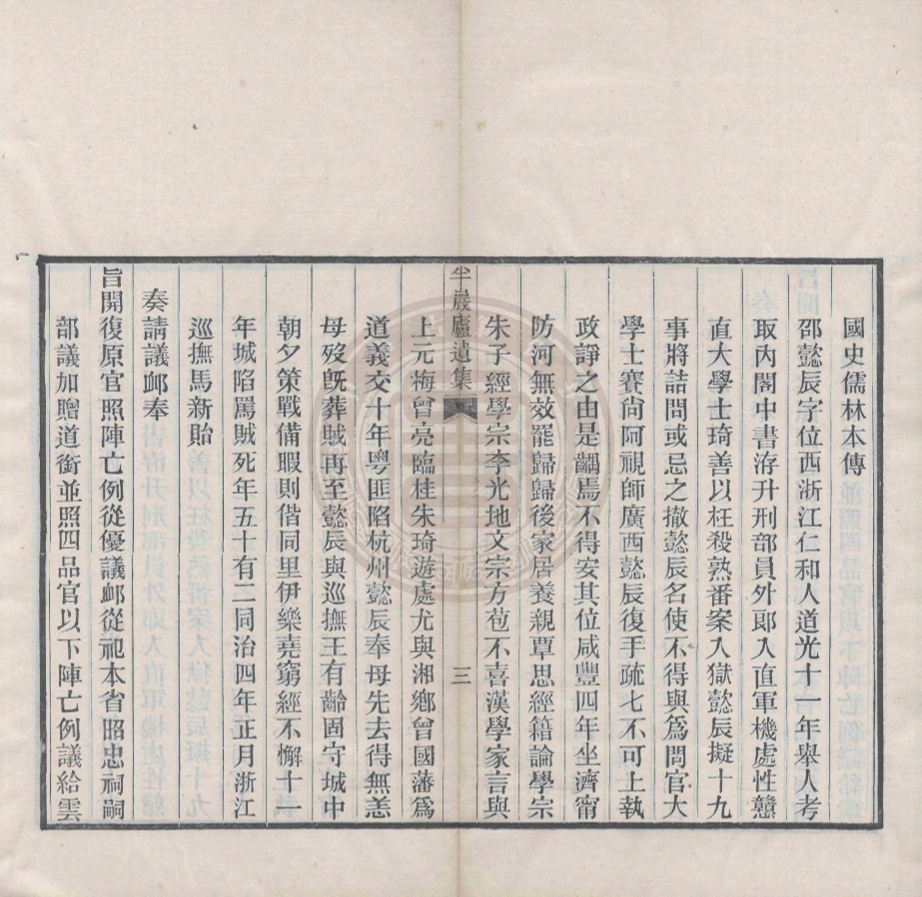 國史儒林本傳
邵懿辰字位西浙江仁和人道光十一年舉人考
取內閣中書洊升刑部員外郎入直軍機處性戇
直大學士琦善以枉殺熟番案入獄懿辰擬十九
事將詰問或忌之撤懿辰名使不得與爲問官大
學士賽尙阿視師廣西懿辰復手疏七不可上執
政諍之由是齮焉不得安其位咸豐四年坐濟甯
防河無效罷歸歸後家居養親覃思經籍論學宗
朱子經學宗李光地文宗方苞不喜漢學家言與
半巖廬遺集
三
上元梅曾亮臨桂朱琦遊處尤與湘鄉曾國藩爲
道義交十年粵匪陷杭州懿辰奉母先去得無恙
母歿旣葬賊再至懿辰與巡撫王有齡固守城中
朝夕策戰備暇則偕同里伊樂堯窮經不懈十一
年城陷罵賊死年五十有二同治四年正月浙江
巡撫馬新貽
奏請議卹奉
旨開復原官照陣亡例從優議卹從祀本省昭忠祠嗣
部議加贈道銜並照四品官以下陣亡例議給雲